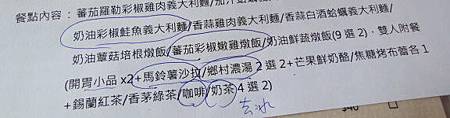 餐點內容：蕃茄羅勒彩椒雞肉義大利麵/加汁
奶油彩椒鮭魚義大利麵/香蒜雞肉義大利麵/香蒜白酒蛤蠣義大利麵/
奶油蘑菇培根燉飯/蕃茄彩椒嫩雞燉飯/奶油鮮蔬燉飯(9選2)．雙人附餐
(開胃小品 x2+馬鈴薯沙拉/鄉村濃湯 2 選 2+芒果鮮奶酪/焦糖烤布蕾各 1
+錫蘭紅茶/香茅綠茶/咖啡/奶茶 4 選 2)
去冰